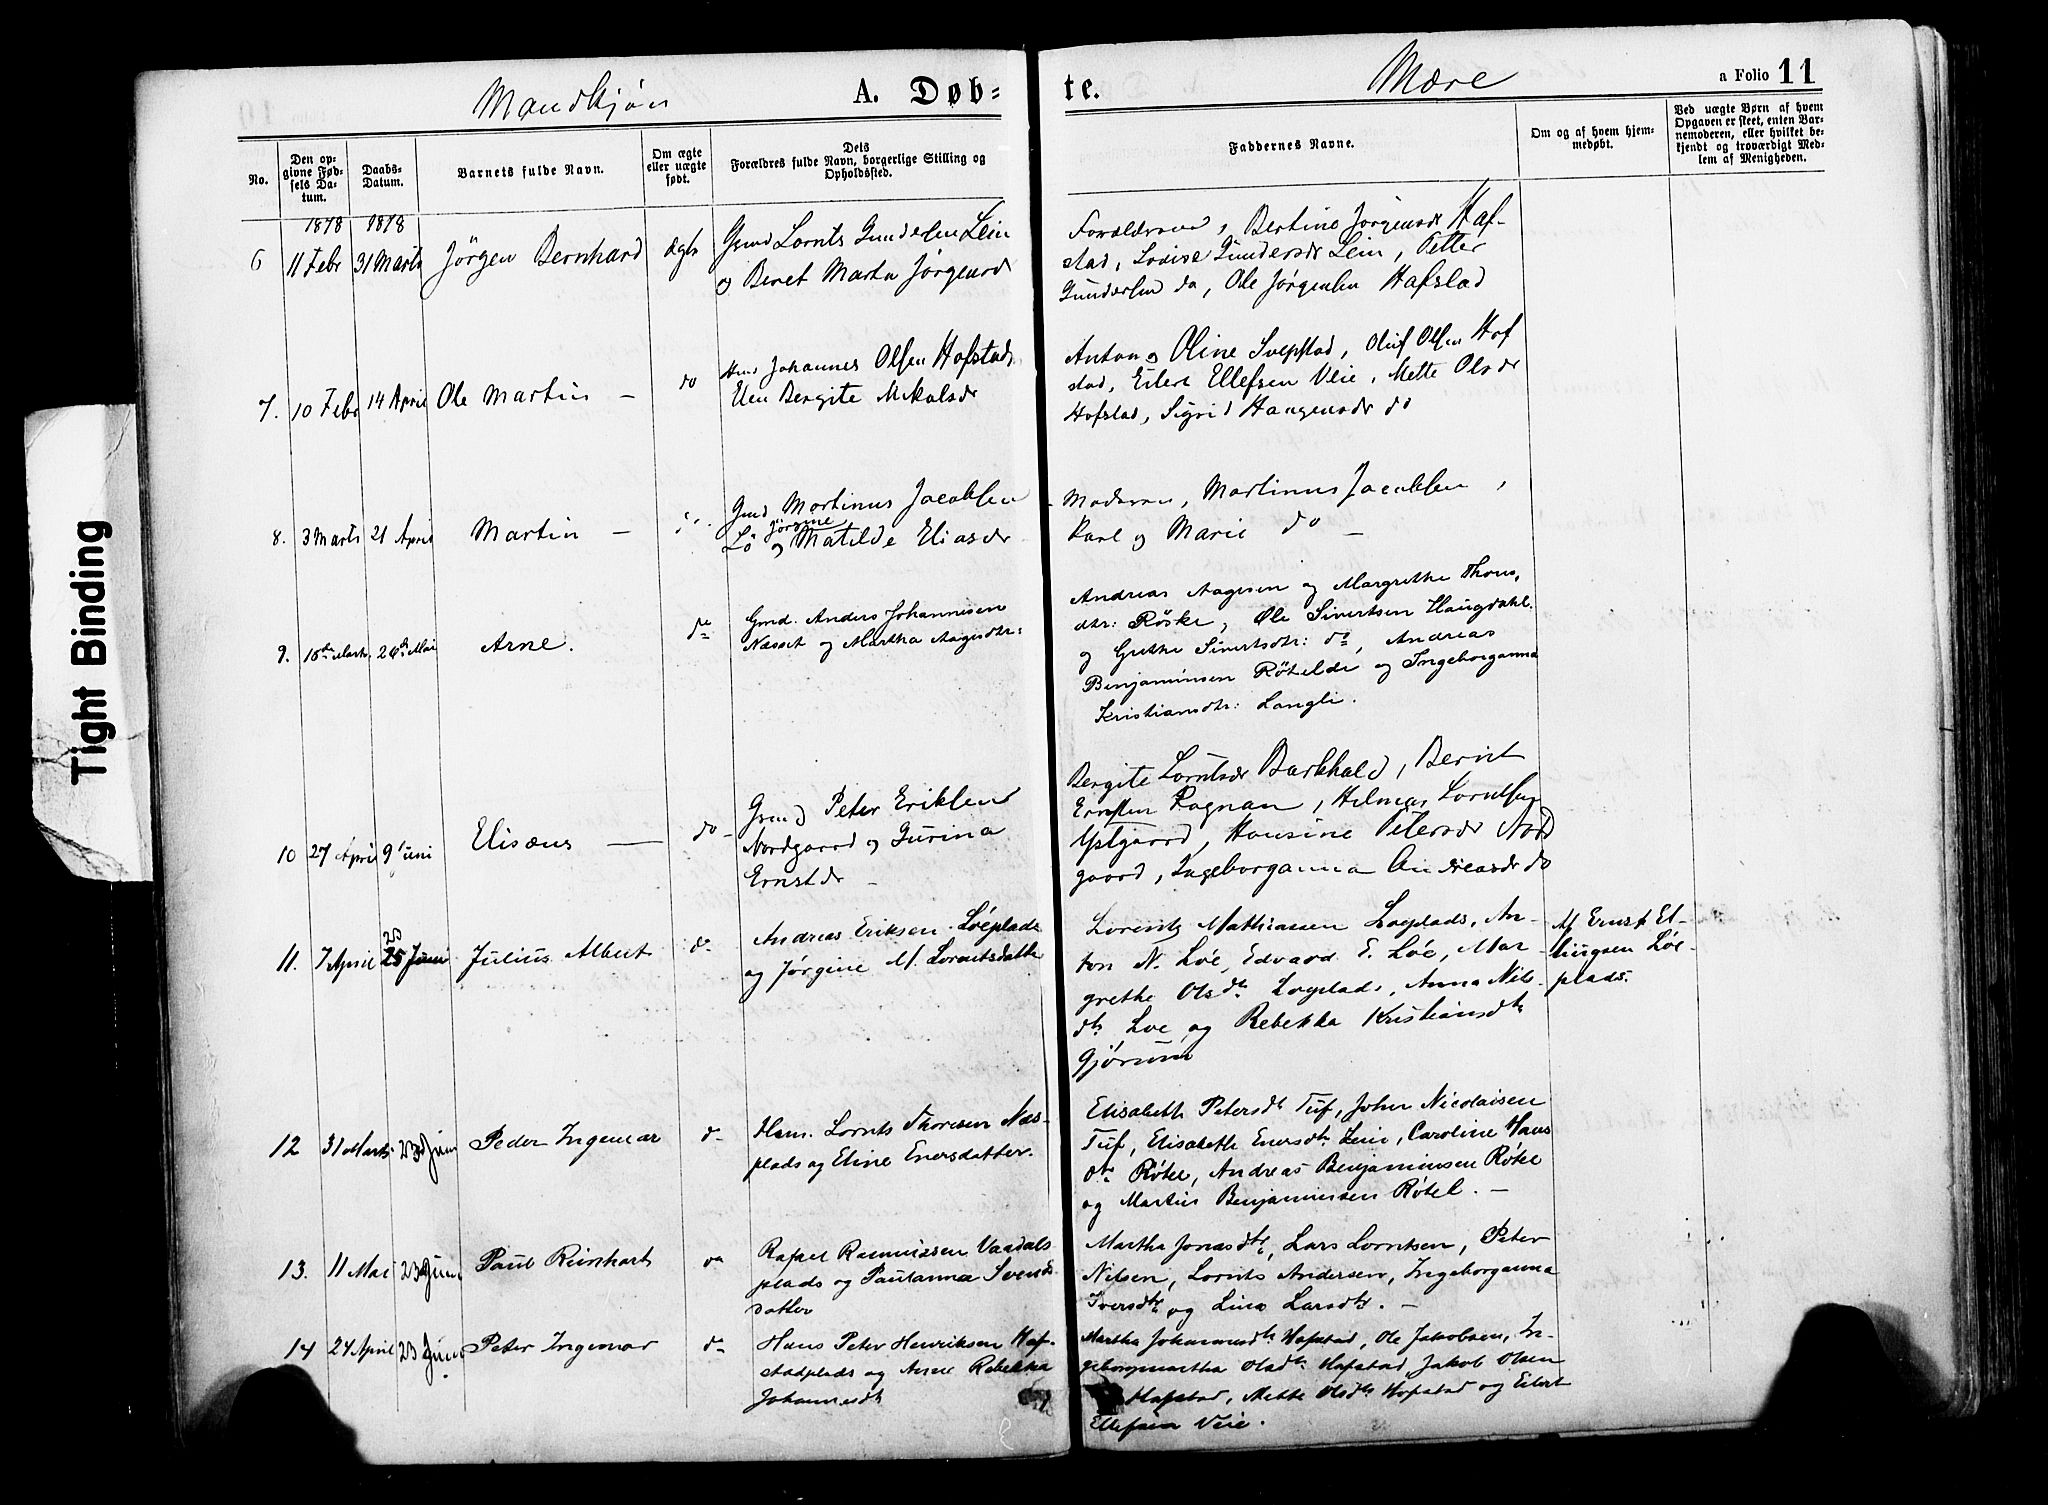 Mandkjøn A. Døb= te. Mære a Folio 11
No.
Den op-
givne Fød-
sels Da-
tum.
Daabs-
Datum.
Barnets fulde Navn.
Om ægte
eller uægte
født.
Dets
Forældres fulde Navn, borgerlige Stilling og
Opholdssted.
Faddernes Navne.
Om og af hvem hjem-
medøbt.
Ved uægte Børn af hvem
Opgaven er skeet, enten Bar-
nemoderen, eller hvilket be-
kjendt og troværdigt Med-
lem af Menigheden.
1878 1878
6 11 Febr 31 Marts Jørgen Bernhard ægte
Gmd Lornts Gundersen Lein
og Beret Marta Jørgensdr
Forældrene, Bertine Jørgensdr Haf-
stad, Lovise Gundersdr Lein, Petter
Gundersen do, Ole Jørgensen Hafstad
7. 10 Febr 14 April Ole Martin — do
Hmd Johannes Olsen Hofstad
Elen Bergite Mikalsdr
Anton og Oline Svepstad, Oluf Olsen Hof
stad, Eilert Ellefsen Veie, Mette Olsdr
Hofstad, Sigrid Haagensdr do
8. 3 Marts 21 April Martin —
Gmd Martinus Jacobsen
Jørgine
Lø og Matilde Eliasdr
Moderen, Martinus Jacobsen,
Karl og Marie do —
9. Marts. Mai Arne. do
Gmd. Anders Johannesen
Næsset og Martha Aagesdtr:
Andreas Aagesen og Margrethe Thom.
dtr: Røske, Ole Sivertsen Haugdahl.
og Grethe Sivertsdtr: do, Andreas
Benjaminsen Røtelde og Ingeborganna
Kristiansdtr: Langli.
10 27 April 9 Juni Elisæus — do
Gmd Peter Eriksen
Nordgaard og Gurina
Ernstdr —
Bergite Lorntsdr Barkhald, Bernt
Ernsten Rognan, Hilmar Lorntsen
Ystgaard, Housine Petersdr Nord
gaard, Ingeborganna Andreasdr do
11. 7 April 23
25 Juni Julius Albert do
Andreas Eriksen Løeplads
og Jørgine M. Lorntsdatter
Lorents Mathiassen Loeplads, An-
ton N. Løe, Edvard E. Løe, Mar
grethe Olsdtr Loeplads, Anna Nils-
dtr Loe og Rebekka Kristiansdtr
Gjørum
Af Ernst El-
lingsen Løe-
plads.
12 31 Marts 23 Juni Peder Ingemar do
Hsm. Lornts Thoresen Næs-
plads og Eline Enersdatter.
Elisabeth Petersdtr Tuf, John Nicolaisen
Tuf, Elisabeth Enersdtr Lein, Caroline Hans
dtr Røtel, Andreas Benjaminsen Røtel
og Martin Benjaminsen Røtel. —
13. 11 Mai 23 Juni Paul Reinhart do
Rafael Rasmussen Vaadals
plads og Paulanna Svends
datter
Martha Jonasdtr, Lars Lorntsen, Peter
Nilsen, Lornts Andersen, Ingeborganna
Iversdtr og Lina Larsdtr. —
14 24 April 23 Juni Peter Ingemar do
Hans Peter Henriksen Haf-
stadplads og Anne Rebekka
Johannesdtr
Martha Johannesdtr Hofstad, Ole Jakobsen, In-
geborgmartha Olsdtr Hafstad, Jakob Olsen
Hafstad, Mette Olsdtr Hofstad og Eilert
Ellefsen Veie.
Tight Binding